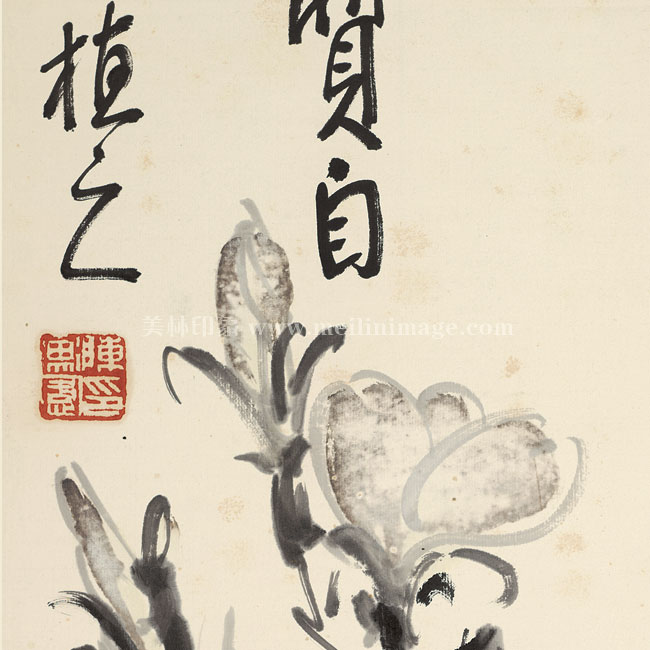 質自
植之
美林印 www.meilinimage.com